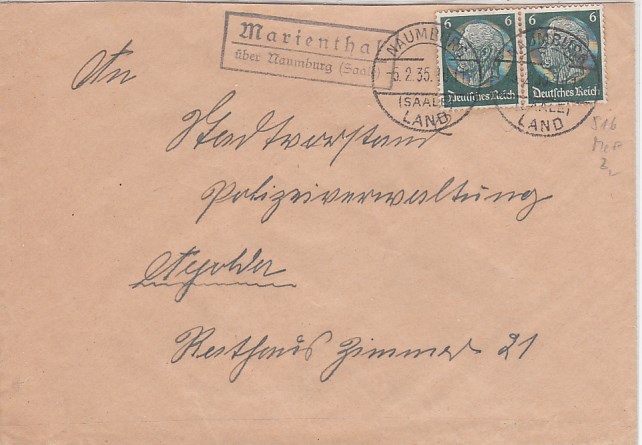 Marienthal
über Naumburg (Saale)
NAUMBURG
-5.2.35.
(SAALE)
LAND
6 6
Deutsches Reich
6 6
Deutsches Reich
NAUMBURG
(SAALE)
LAND
An
Stadtvorstand
Polizeiverwaltung
Apolda
Rathaus Zimmer 21